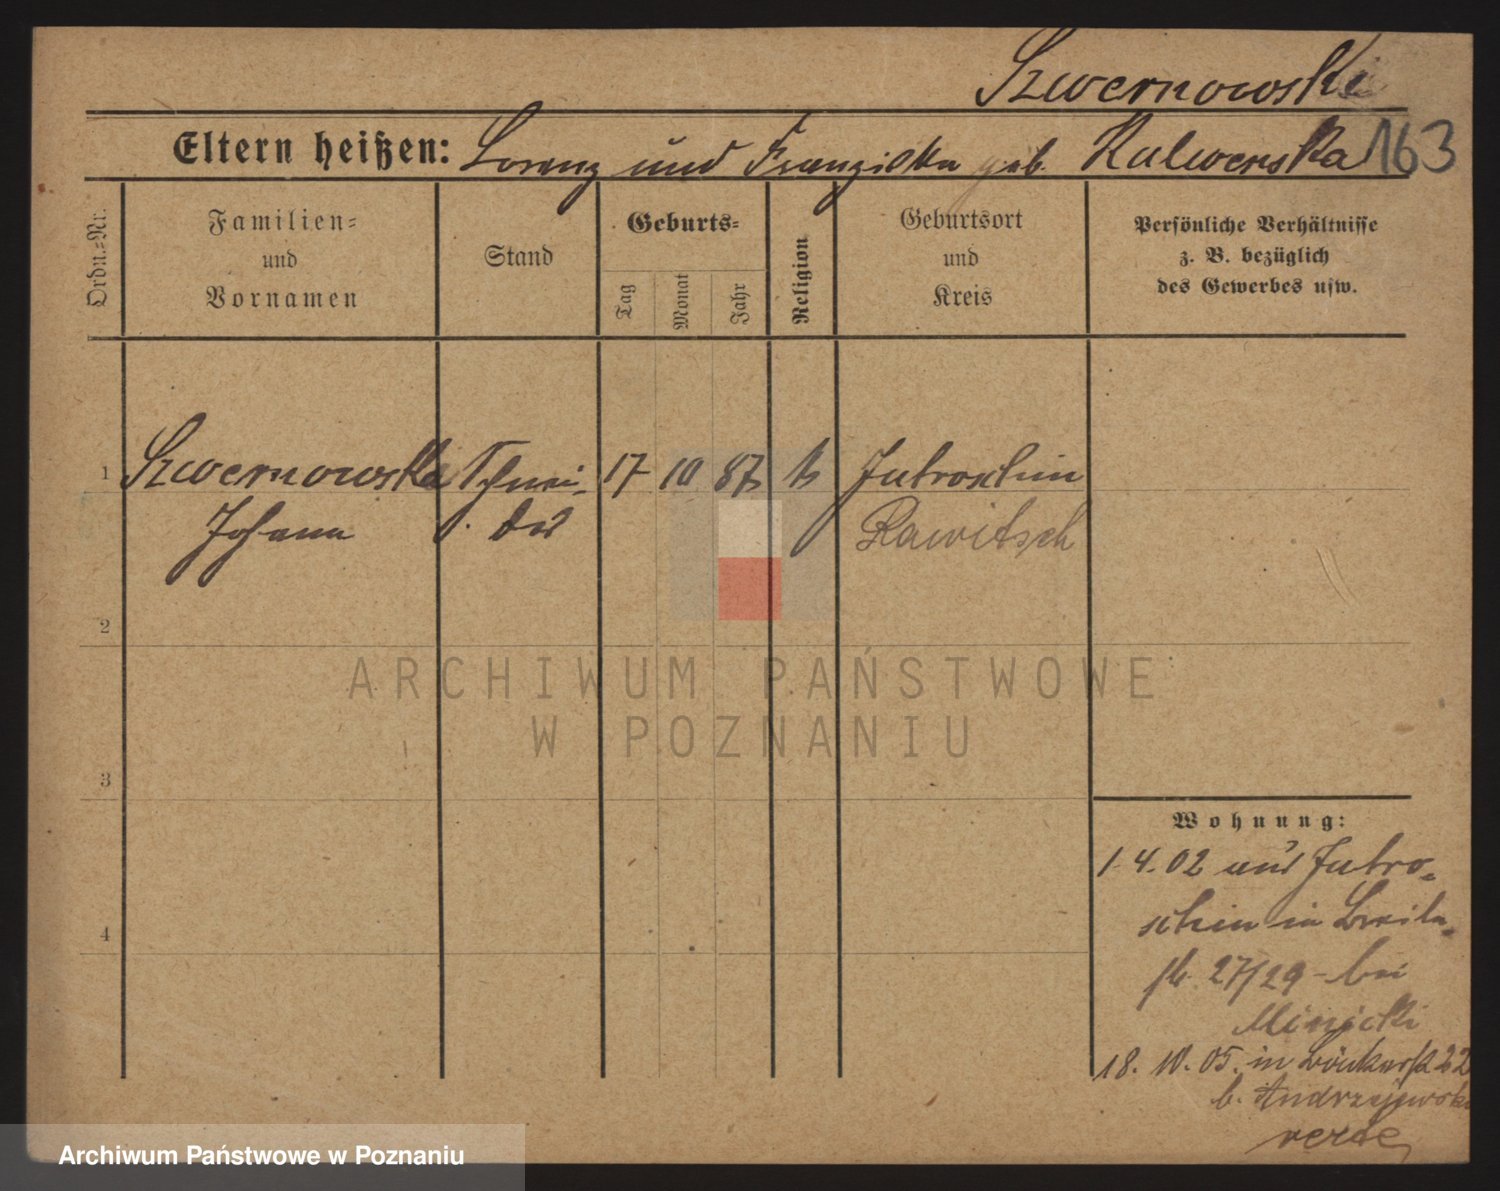 Szwernowski
Eltern heißen: Lorenz und Franziska geb. Kalwenska 163
Ordn.-Nr.
Familien-
und
Vornamen
Stand
Geburts-
Tag
Monat
Jahr
Religion
Geburtsort
und
Kreis
Persönliche Verhältnisse
z. B. bezüglich
des Gewerbes usw.
1 Szwernowski Schnei- 17 10 87 k Jutroschin
Johann der Rawitsch
2
3
4
Wohnung:
1.4.02 aus Jutro-
schin in Breite-
str. 27/29 bei
18.10.05. in 22
b. Andrzejewski
ARCHIWUM PAŃSTWOWE
W POZNANIU
Archiwum Państwowe w Poznaniu